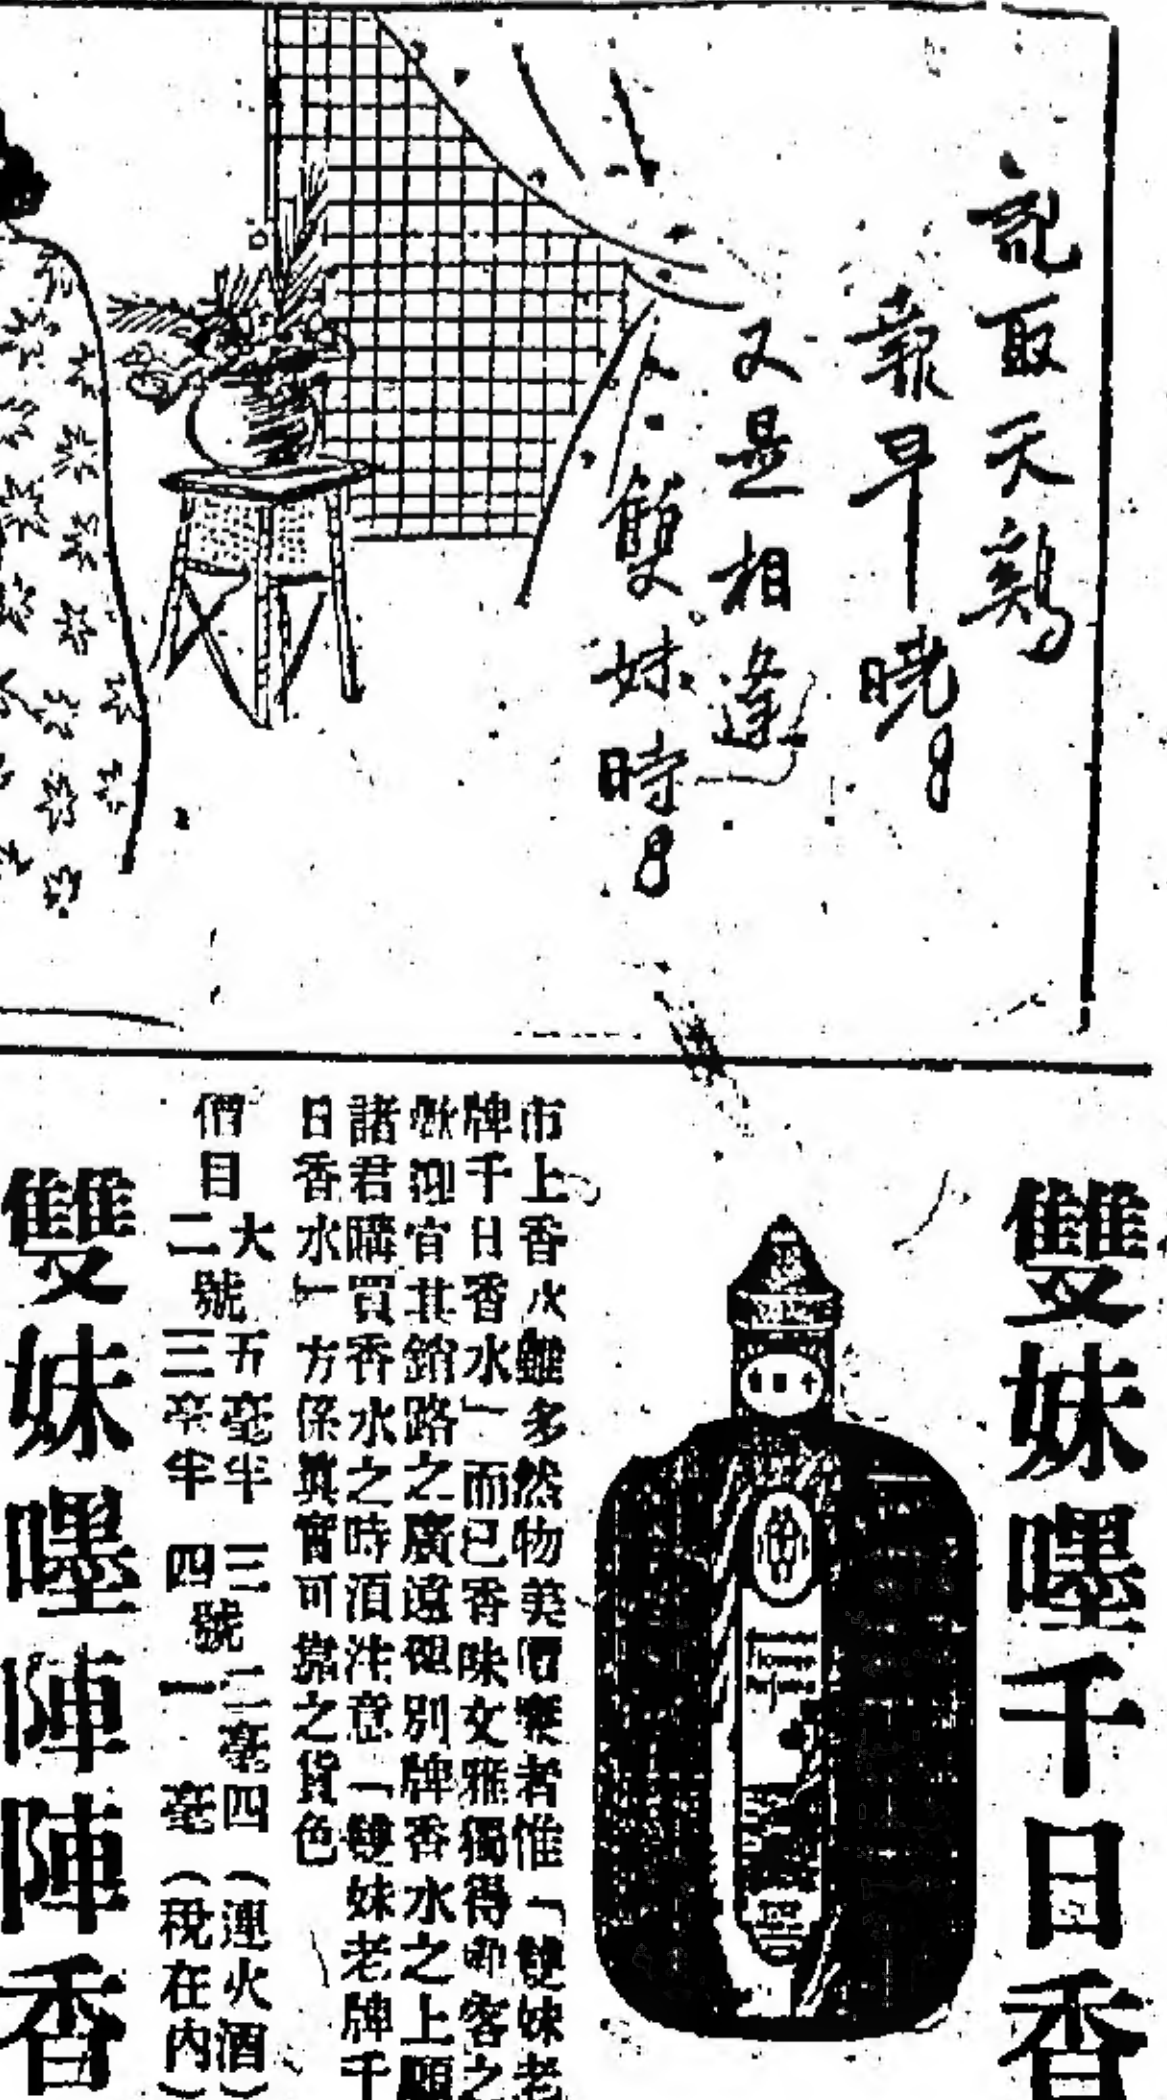 記取天鷄
報早曉
又是相逢
雙妹時
雙妹嚜千日香
市上香水雖多然物美價廉者惟「雙妹老
牌千日香水」而已香味文雅獨得顧客之
歡迎宜其銷路之廣遠確別牌香水之上願
諸君購買香水之時須注意「雙妹老牌千
日香水」方係真實可靠之貨色
價目
大號五毫半 三號二毫四（連火酒）
二號三毫半 四號一毫（稅在內）
雙妹嚜陣陣香
Florida